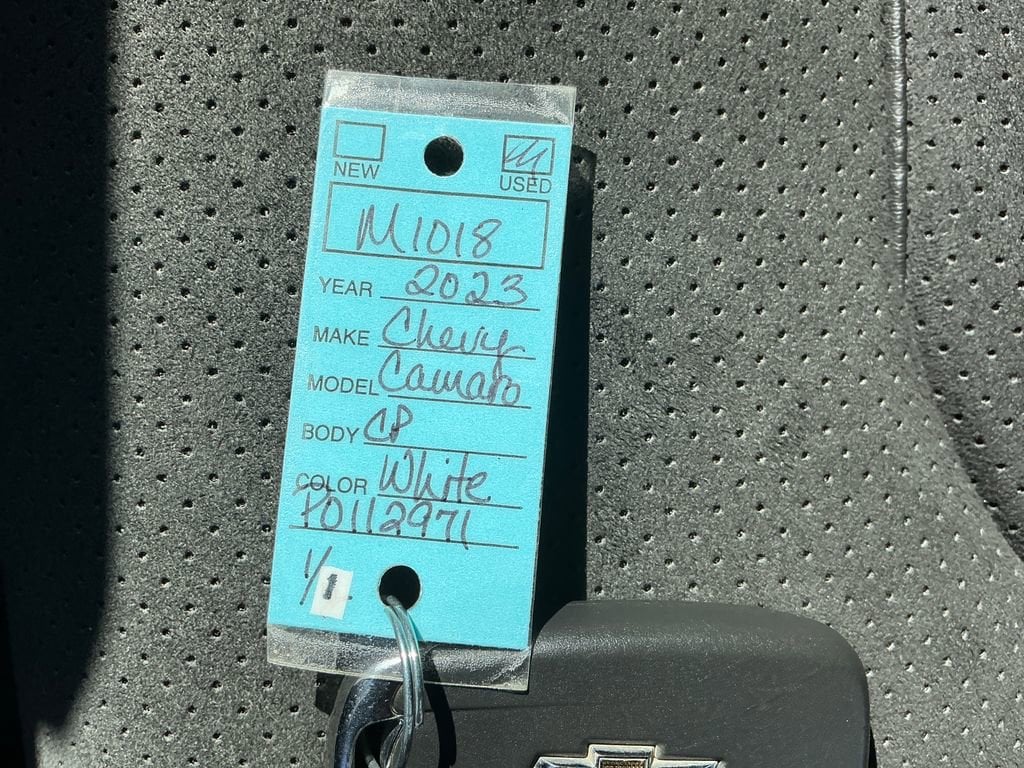 NEW USED
M1018
YEAR 2023
MAKE Chevy
MODEL Camaro
BODY CP
COLOR White
P0112971
1/1